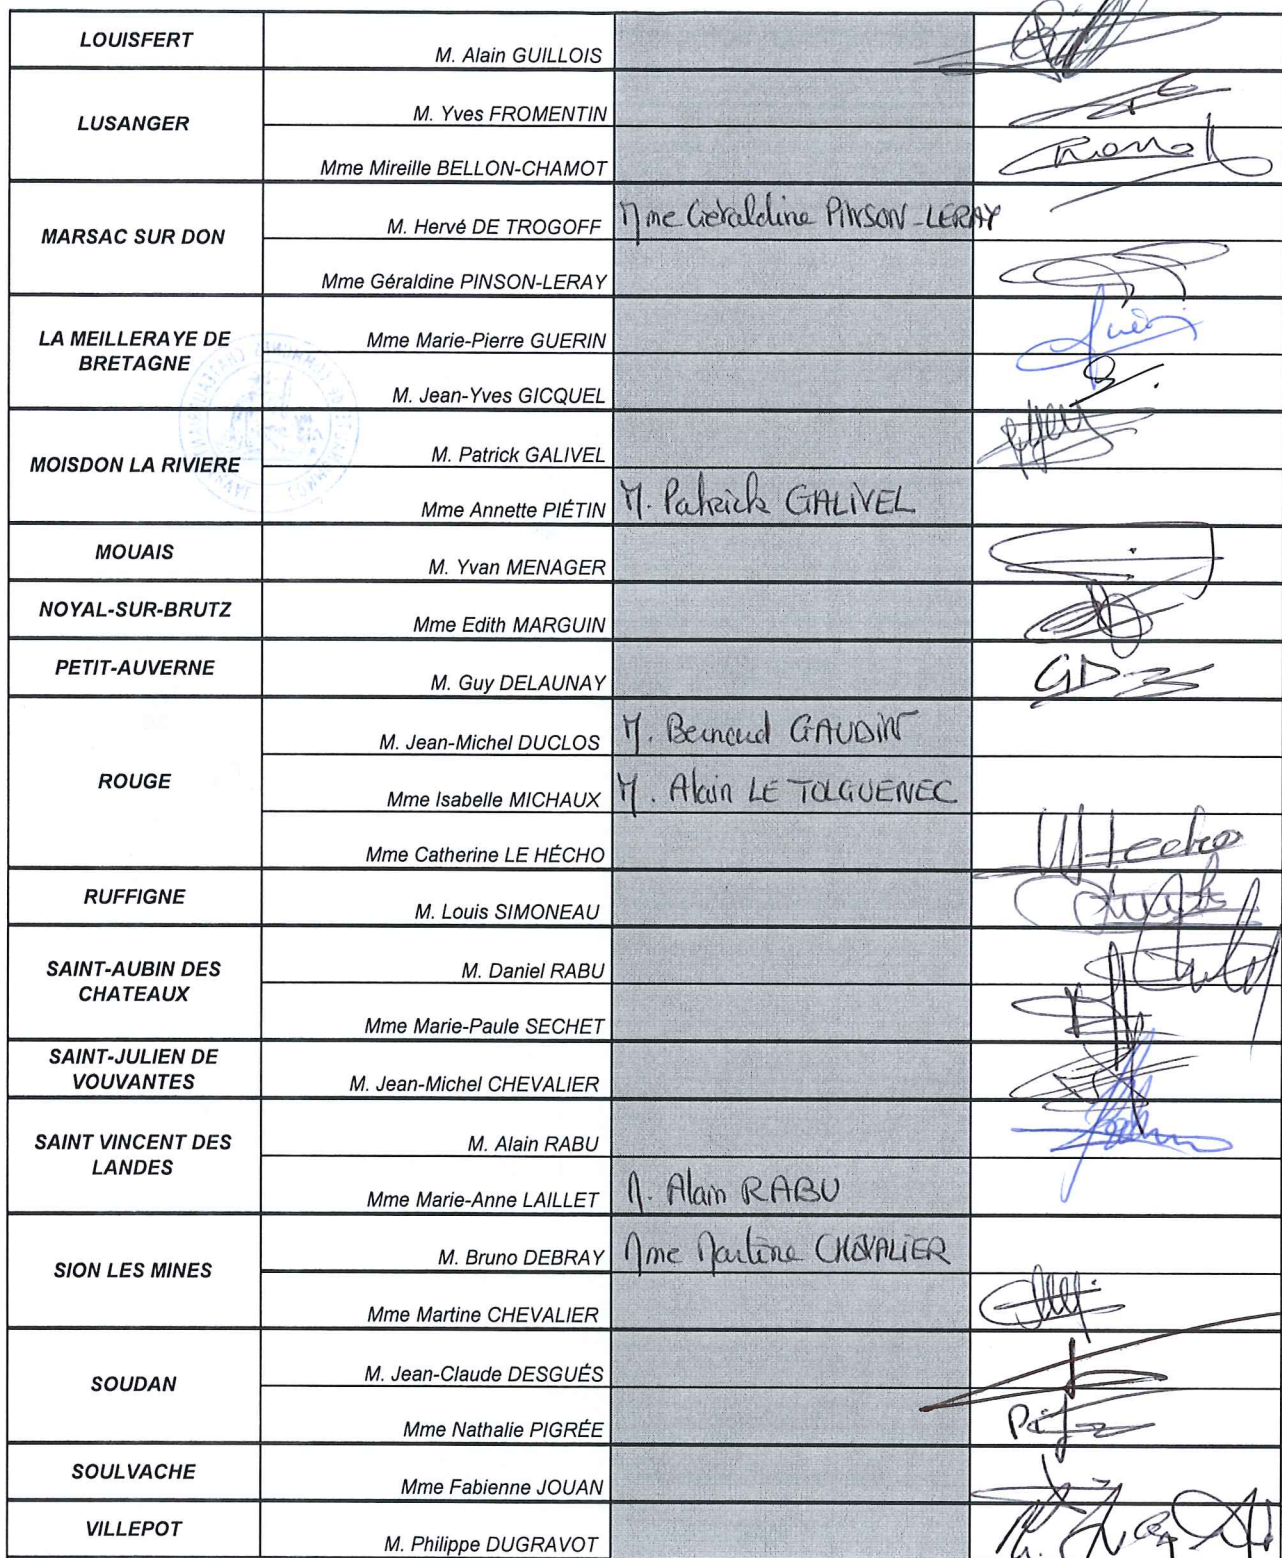 LOUISFERT
M. Alain GUILLOIS
LUSANGER
M. Yves FROMENTIN
Mme Mireille BELLON-CHAMOT
MARSAC SUR DON
M. Hervé DE TROGOFF
Mme Géraldine PINSON-LERAY
Mme Géraldine PINSON-LERAY
LA MEILLERAYE DE
BRETAGNE
Mme Marie-Pierre GUERIN
M. Jean-Yves GICQUEL
MOISDON LA RIVIERE
M. Patrick GALIVEL
Mme Annette PIÉTIN
M. Patrick GALIVEL
MOUAIS
M. Yvan MENAGER
NOYAL-SUR-BRUTZ
Mme Edith MARGUIN
PETIT-AUVERNE
M. Guy DELAUNAY
GD
ROUGE
M. Jean-Michel DUCLOS
M. Bernard GAUDIN
Mme Isabelle MICHAUX
M. Alain LE TOLGUENEC
Mme Catherine LE HÉCHO
RUFFIGNE
M. Louis SIMONEAU
SAINT-AUBIN DES
CHATEAUX
M. Daniel RABU
Mme Marie-Paule SECHET
SAINT-JULIEN DE
VOUVANTES
M. Jean-Michel CHEVALIER
SAINT VINCENT DES
LANDES
M. Alain RABU
Mme Marie-Anne LAILLET
M. Alain RABU
SION LES MINES
M. Bruno DEBRAY
Mme Martine CHEVALIER
Mme Martine CHEVALIER
SOUDAN
M. Jean-Claude DESGUÉS
Mme Nathalie PIGRÉE
SOULVACHE
Mme Fabienne JOUAN
VILLEPOT
M. Philippe DUGRAVOT